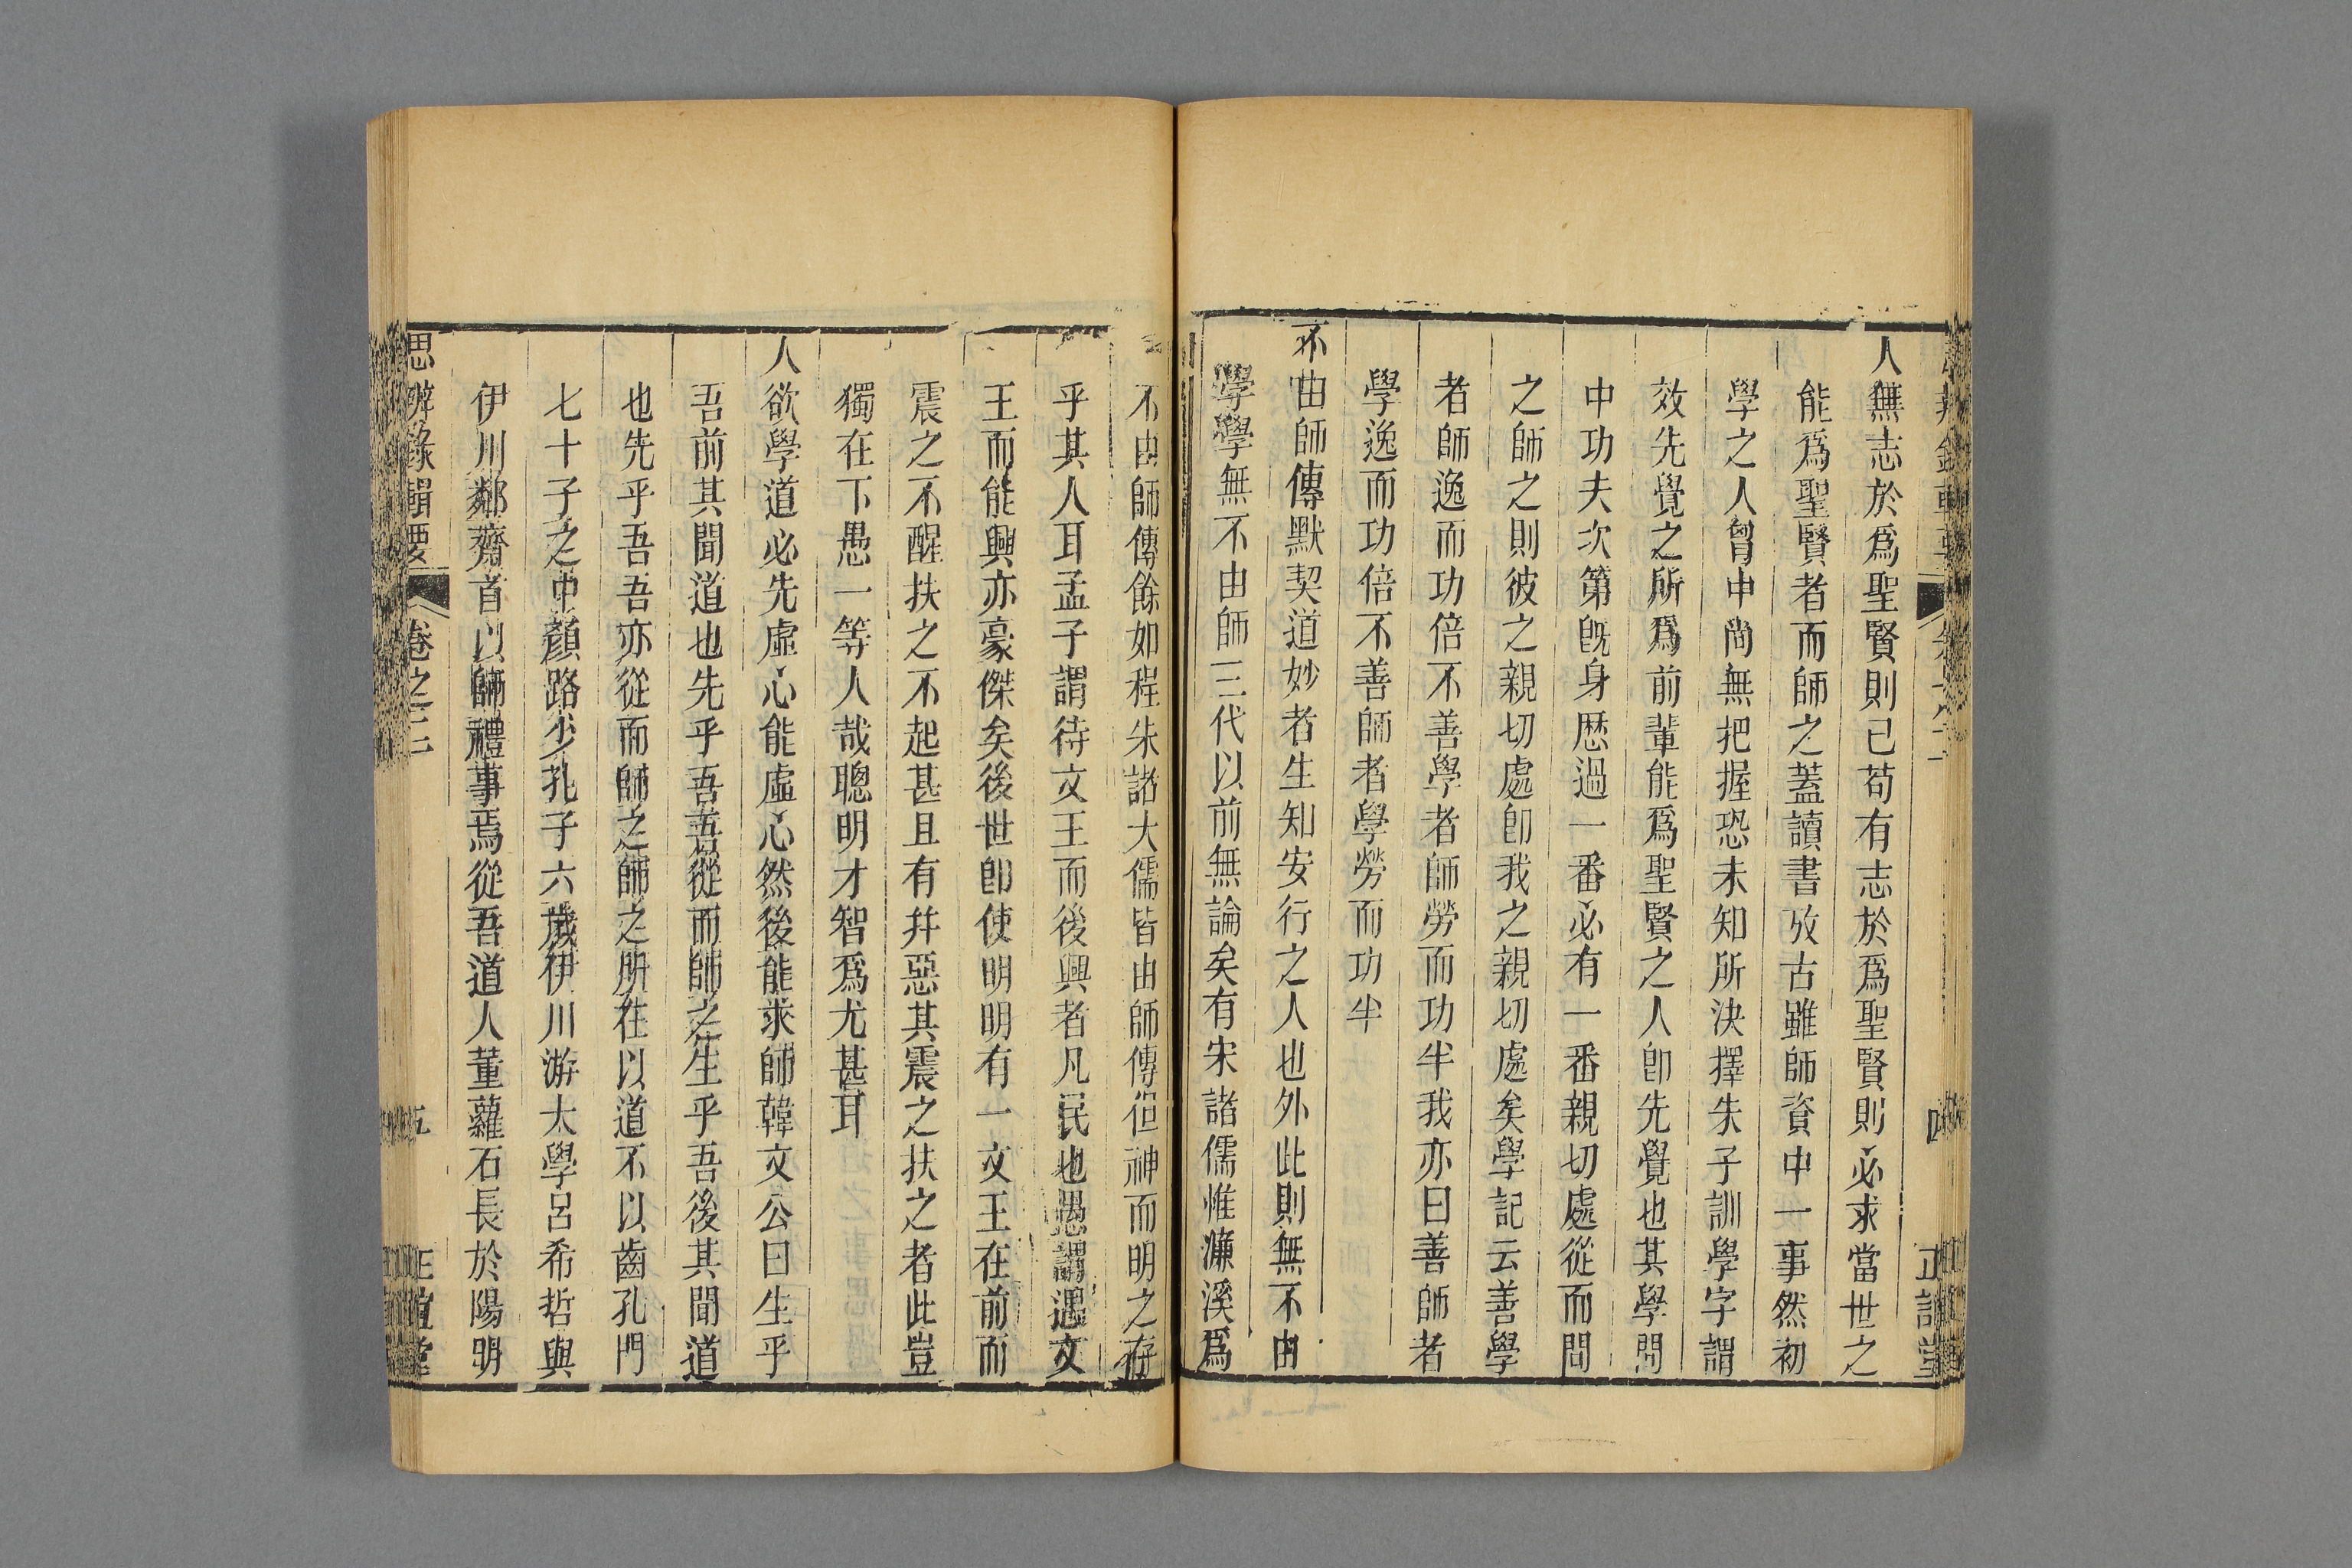 人無志於爲聖賢則已苟有志於爲聖賢則必求當世之
能爲聖賢者而師之蓋讀書攷古雖師資中一事然初
學之人胷中尚無把握恐未知所決擇朱子訓學字謂
效先覺之所爲前輩能爲聖賢之人卽先覺也其學問
中功夫次第旣身歷過一番必有一番親切處從而問
之師之則彼之親切處卽我之親切處矣學記云善學
者師逸而功倍不善學者師勞而功半我亦曰善師者
學逸而功倍不善師者學勞而功半
不由師傳默契道妙者生知安行之人也外此則無不由
學學無不由師三代以前無論矣有宋諸儒惟濂溪爲
不由師傳餘如程朱諸大儒皆由師傳但神而明之存
乎其人耳孟子謂待文王而後興者凡民也愚謂遇文
王而能興亦豪傑矣後世卽使明明有一文王在前而
震之不醒扶之不起甚且有幷惡其震之扶之者此豈
獨在下愚一等人哉聰明才智爲尤甚耳
人欲學道必先虛心能虛心然後能求師韓文公曰生乎
吾前其聞道也先乎吾吾從而師之生乎吾後其聞道
也先乎吾吾亦從而師之師之所在以道不以齒孔門
七十子之中顏路少孔子六歲伊川游太學呂希哲與
伊川鄰齋首以師禮事焉從吾道人董蘿石長於陽明
思辨錄輯要 卷之二 五 正誼堂